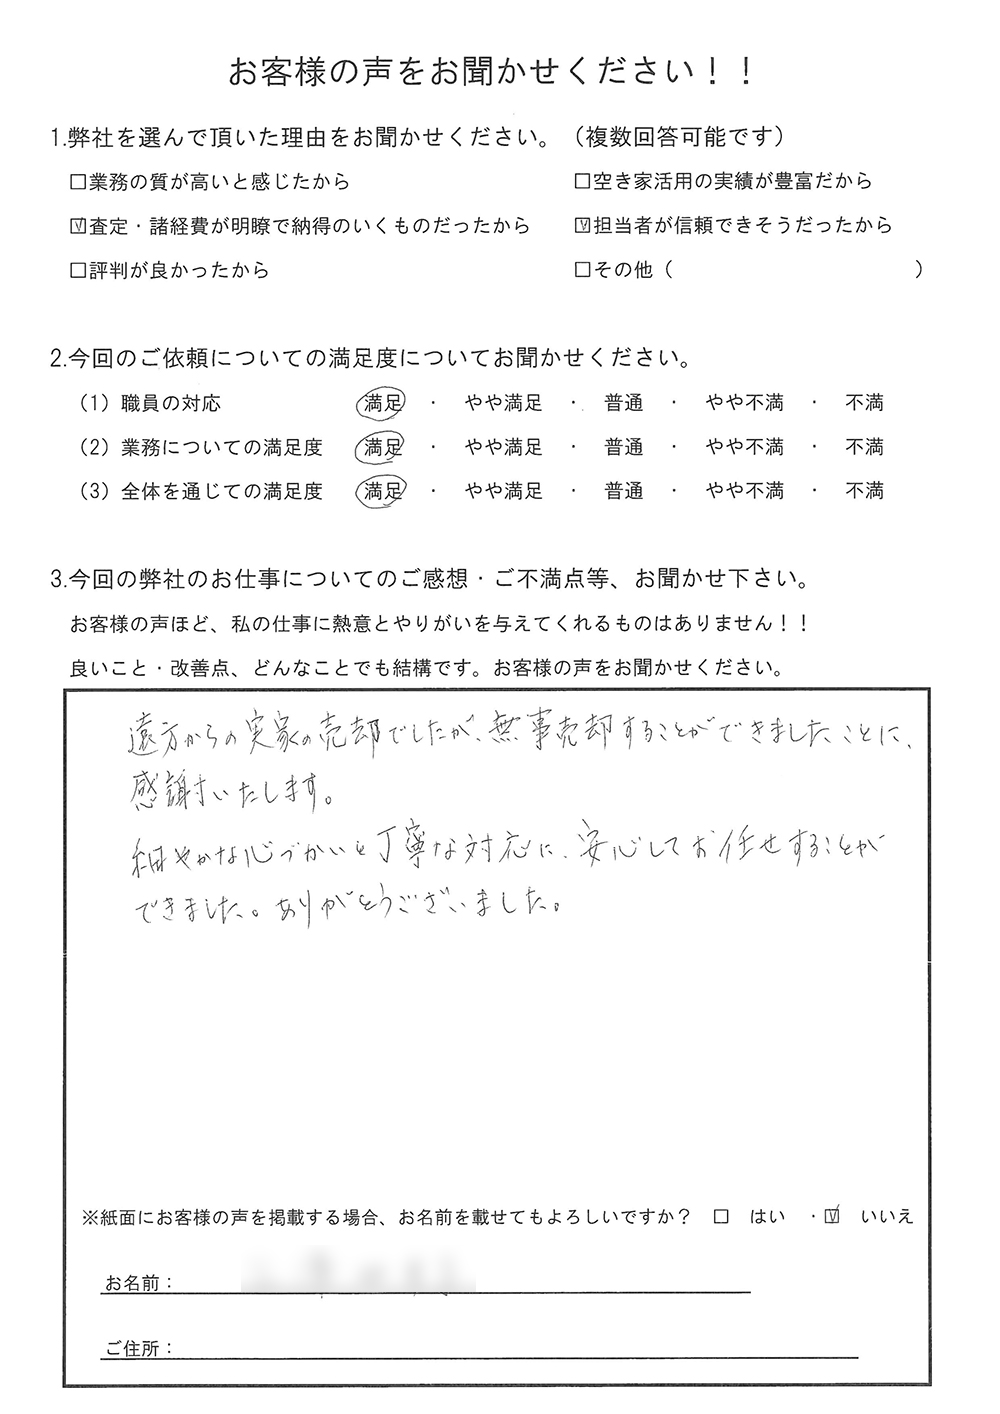 お客様の声をお聞かせください！！
1.弊社を選んで頂いた理由をお聞かせください。（複数回答可能です）
□業務の質が高いと感じたから　□空き家活用の実績が豊富だから
☑査定・諸経費が明瞭で納得のいくものだったから　☑担当者が信頼できそうだったから
□評判が良かったから　□その他（　　　）
2.今回のご依頼についての満足度についてお聞かせください。
（1）職員の対応　満足　・　やや満足　・　普通　・　やや不満　・　不満
（2）業務についての満足度　満足　・　やや満足　・　普通　・　やや不満　・　不満
（3）全体を通じての満足度　満足　・　やや満足　・　普通　・　やや不満　・　不満
3.今回の弊社のお仕事についてのご感想・ご不満点等、お聞かせ下さい。
お客様の声ほど、私の仕事に熱意とやりがいを与えてくれるものはありません！！
良いこと・改善点、どんなことでも結構です。お客様の声をお聞かせください。
遠方からの実家の売却でしたが、無事売却することができましたことに、
感謝いたします。
細やかな心づかいと丁寧な対応に、安心してお任せすることが
できました。ありがとうございました。
※紙面にお客様の声を掲載する場合、お名前を載せてもよろしいですか？　□　はい　・☑　いいえ
お名前：
ご住所：